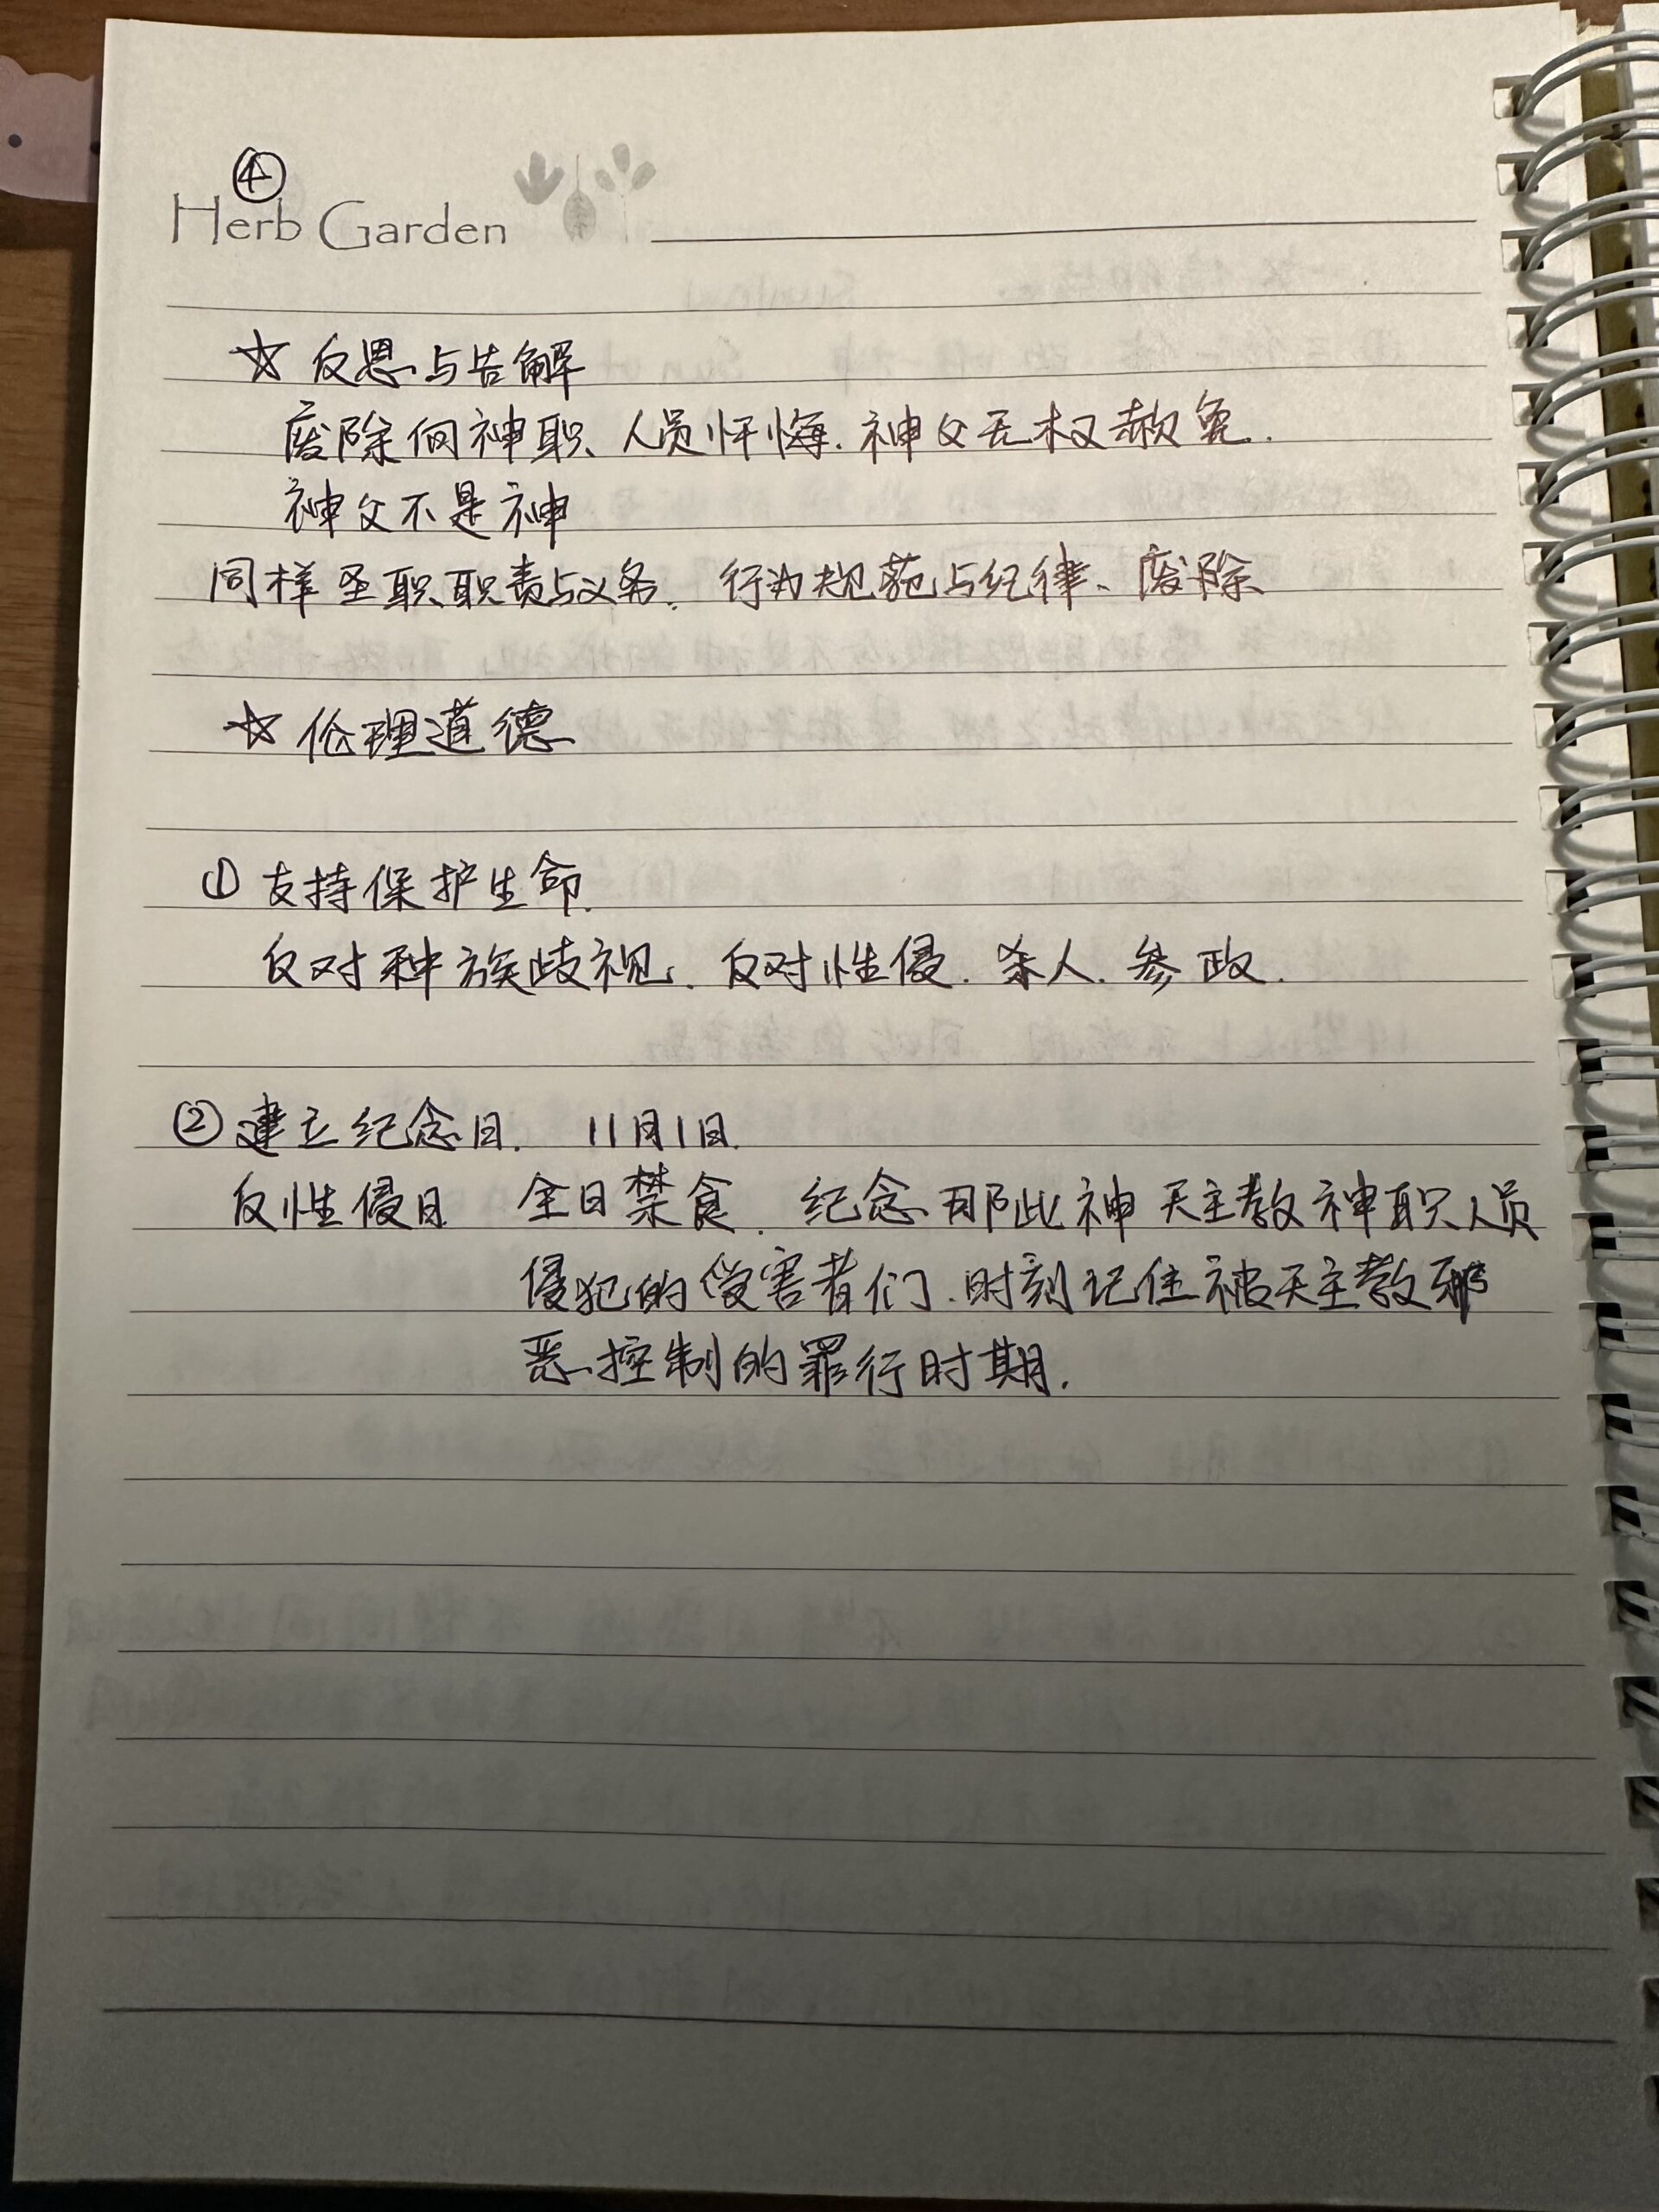 ④
Herb Garden
☆ 反思与告解
废除向神职人员忏悔.神父无权赦免.
神父不是神
同样圣职职责与义务. 行为规范与纪律、废除
☆ 伦理道德
① 支持保护生命.
反对种族歧视. 反对性侵. 杀人. 参政.
② 建立纪念日. 11月1日.
反性侵日 全日禁食. 纪念那些神天主教神职人员
侵犯的受害者们.时刻记住被天主教邪
恶控制的罪行时期.